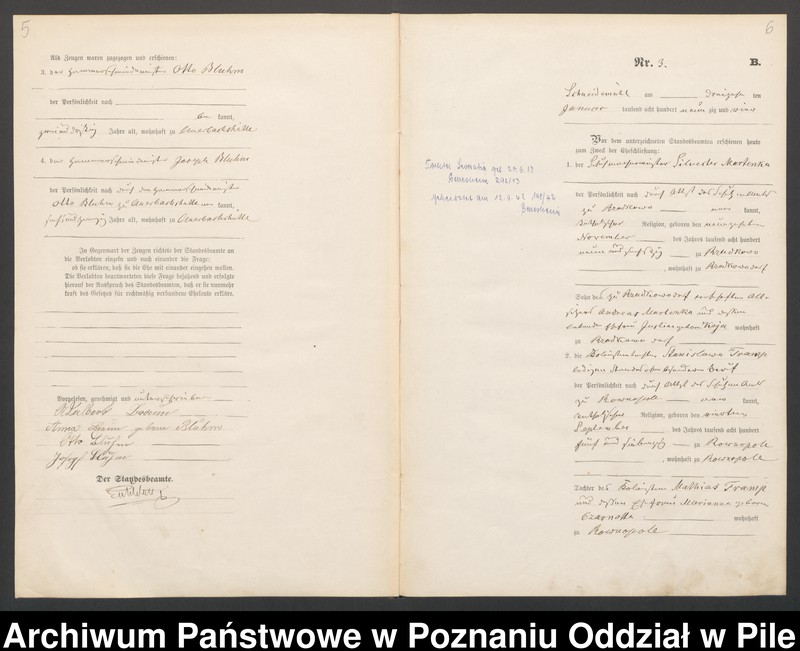 5
Als Zeugen waren zugezogen und erschienen:
3. der Hammerschmiedmeister Otto Bluhm
der Persönlichkeit nach
be kannt,
zweiunddreißig Jahre alt, wohnhaft zu Auerbachshütte
4. der Hammerschmiedmeister Joseph Bluhm
der Persönlichkeit nach durch den Hammerschmiedmeister
Otto Bluhm zu Auerbachshütte kannt,
fünfundzwanzig Jahre alt, wohnhaft zu Auerbachshütte
In Gegenwart der Zeugen richtete der Standesbeamte an
die Verlobten einzeln und nach einander die Frage:
ob sie erklären, daß sie die Ehe mit einander eingehen wollen.
Die Verlobten beantworteten diese Frage bejahend und erfolgte
hierauf der Ausspruch des Standesbeamten, daß er sie nunmehr
kraft des Gesetzes für rechtmäßig verbundene Eheleute erkläre.
Vorgelesen, genehmigt und unterschrieben
Anna geborne Bluhm
Otto Bluhm
Josef Bluhm
Der Standesbeamte.
6
Nr. 3. B.
Schneidemühl am dreizehn ten
Januar tausend acht hundert neun zig und vier
Vor dem unterzeichneten Standesbeamten erschienen heute
zum Zweck der Eheschließung:
1. der Schuhmachermeister Silvester Martenka
der Persönlichkeit nach durch Attest des Schulzenamts
zu Rzadkowo kannt,
katholischer Religion, geboren den neunzehnten
November des Jahres tausend acht hundert
neun und sechszig zu Rzadkowo
, wohnhaft zu Rzadkowo dorf
Sohn des zu Rzadkowo dorf verstorbenen
Andreas Martenka und dessen
lebenden Ehefrau Justine geborne Koja wohnhaft
zu Rzadkowo dorf
2. die Stanislawa Framp
ledigen Standes ohne besonderen Beruf
der Persönlichkeit nach durch Attest des Schulzenamts
zu Rownopole kannt,
katholischer Religion, geboren den vierten
September des Jahres tausend acht hundert
fünf und siebenzig zu Rownopole
, wohnhaft zu Rownopole
Tochter des Mathias Framp
und dessen Ehefrau Marianna geborne
Czarnotta wohnhaft
zu Rownopole
Archiwum Państwowe w Poznaniu Oddział w Pile